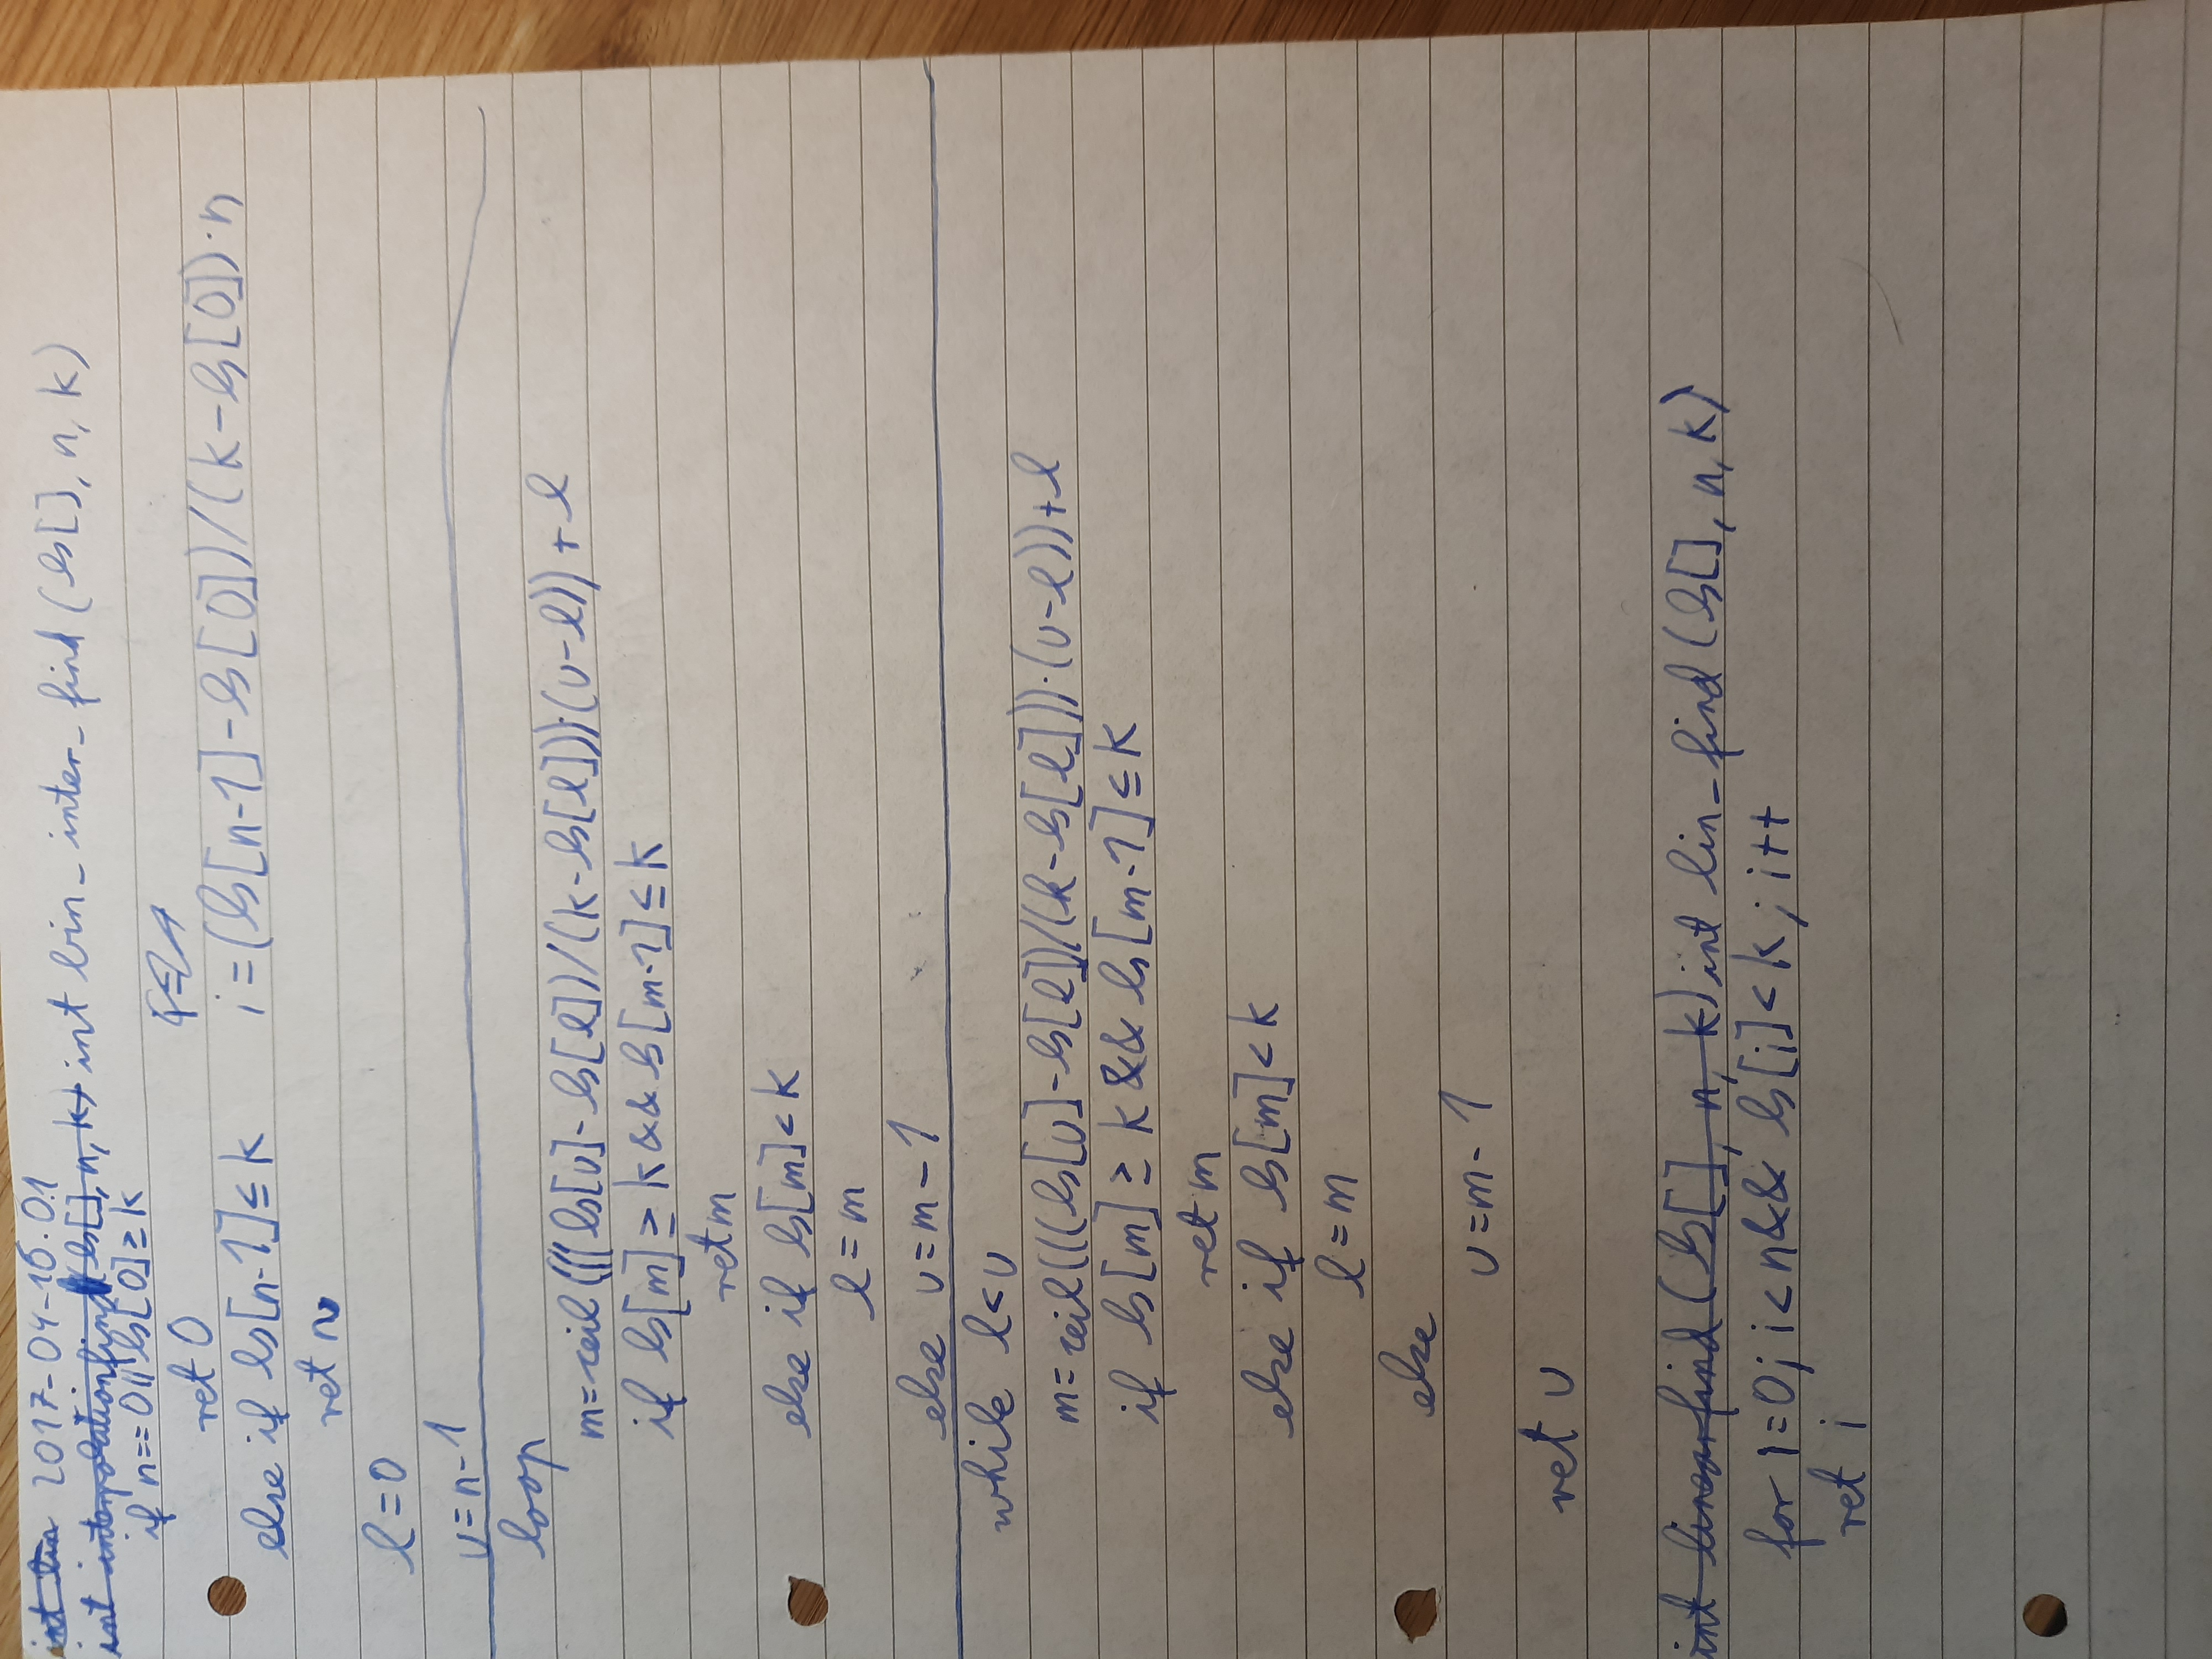 int lin 2017-04-16.01
int interpolationfind b[], n, k) int bin_inter_find (b[], n, k)
if n==0||b[0]≥k
ret 0
else if b[n-1]≤k i=(b[n-1]-b[0])/(k-b[0])·n
ret n
l=0
u=n-1
loop
m=ceil(((b[u]-b[l])/(k-b[l]))·(u-l))+l
if b[m]≥k&&b[m-1]≤k
ret m
else if b[m]<k
l=m
else u=m-1
while l<u
m=ceil(((b[u]-b[l])/(k-b[l]))·(u-l))+l
if b[m]≥k&&b[m-1]≤k
ret m
else if b[m]<k
l=m
else
u=m-1
ret u
int linearfind (b[], n, k) int lin_find (b[], n, k)
for i=0; i<n&& b[i]<k; i++
ret i